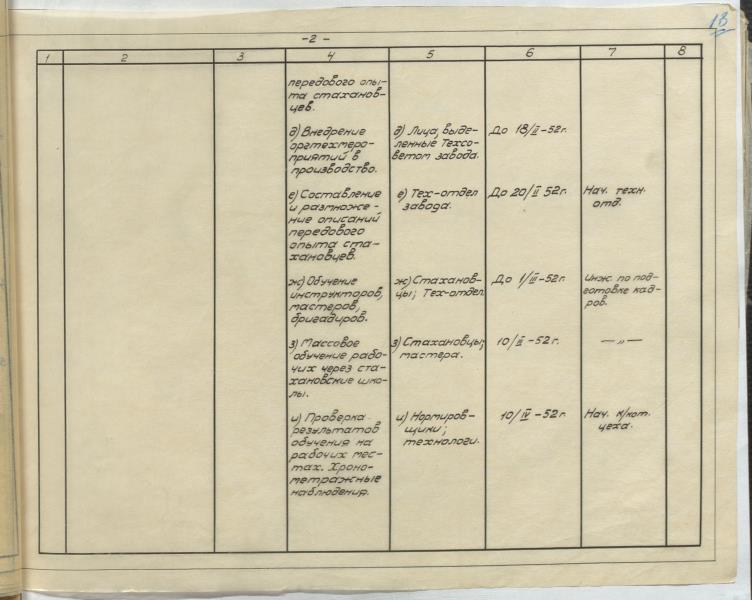 18
-2-
1 2 3 4 5 6 7 8
передового опы-
та стаханов-
цев.
д) Внедрение
оргтехмеро-
приятий в
производство.
д) Лица, выде-
ленные Техсо-
ветом завода.
До 18/II-52г.
е) Составление
и размноже-
ние описаний
передового
опыта ста-
хановцев.
е) Тех-отдел
завода.
До 20/II 52г.
Нач. техн.
отд.
ж) Обучение
инструкторов,
мастеров,
бригадиров.
ж) Стаханов-
цы; Тех-отдел
До 1/III-52г.
Инж. по под-
готовке кад-
ров.
з) Массовое
обучение рабо-
чих через ста-
хановские шко-
лы.
з) Стахановцы;
мастера.
10/II-52г.
— „ —
и) Проверка
результатов
обучения на
рабочих мес-
тах. Хроно-
метражные
наблюдения.
и) Нормиров-
щики;
технологи.
10/IV-52г.
Нач. к/кот.
цеха.